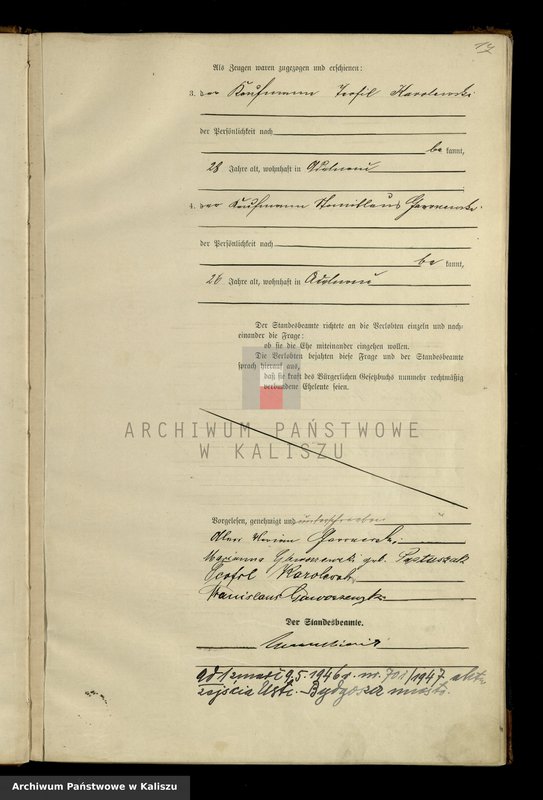 14
Als Zeugen waren zugezogen und erschienen:
3. der Kaufmann Teofil Karolewski
der Persönlichkeit nach
be kannt,
28 Jahre alt, wohnhaft in Adelnau
4. der Kaufmann Stanislaus
der Persönlichkeit nach
be kannt,
26 Jahre alt, wohnhaft in Adelnau
Der Standesbeamte richtete an die Verlobten einzeln und nach-
einander die Frage:
ob sie die Ehe miteinander eingehen wollen.
Die Verlobten bejahten diese Frage und der Standesbeamte
sprach hierauf aus,
daß sie kraft des Bürgerlichen Gesetzbuchs nunmehr rechtmäßig
verbundene Eheleute seien.
ARCHIWUM PAŃSTWOWE
W KALISZU
Vorgelesen, genehmigt und unterschrieben
Marianna geb.
Teofil Karolewski
Stanislaus
Der Standesbeamte.
zmarł 9.5.1946 r. nr. 701/1947 akt
zejścia Bydgoszcz miasto.
Archiwum Państwowe w Kaliszu